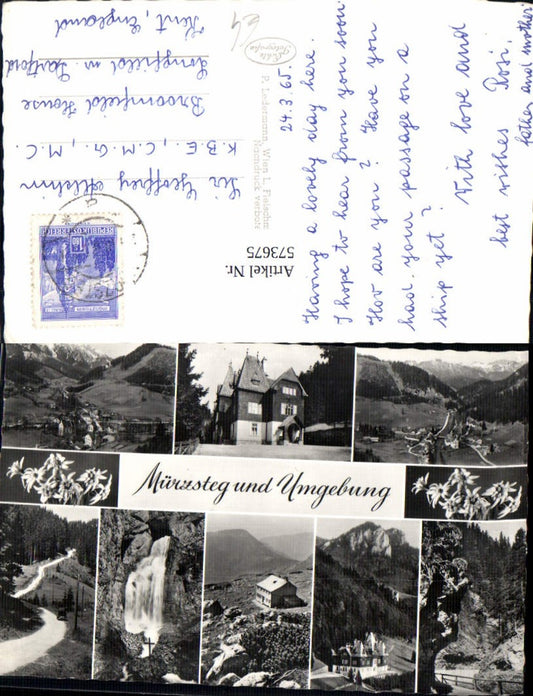 Having a lovely day here.
I hope to hear from you soon.
How are you? Have you
had your passage on a
ship yet?
With love and
best wishes Rosi,
father and mother
24.3.65
P. Ledermann, Wien I., Fleischm
Nachdruck verboten
Artikel Nr.
573675
REPUBLIK ÖSTERREICH
Sir Geoffrey
K.B.E., C.M.G., M.C.
Broomfield House
Longfield nr Dartford
Kent, England
Mürzsteg und Umgebung